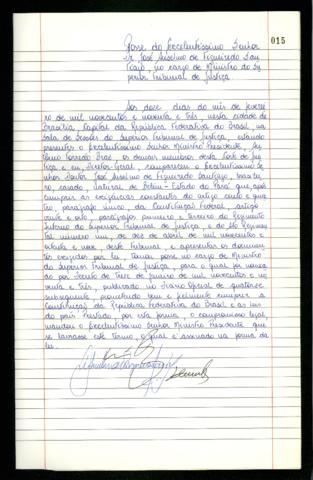 015
Posse do Excelentíssimo Senhor
Dr. José Anselmo de Figueiredo San-
tiago, no cargo de Ministro do Su-
perior Tribunal de Justiça
Aos doze dias do mês de feverei-
ro de mil novecentos e noventa e três, nesta cidade de
Brasília, Capital da República Federativa do Brasil, na
Sala de Sessões do Superior Tribunal de Justiça, estando
presentes o Excelentíssimo Senhor Ministro Presidente,
os demais membros desta Corte de Jus-
tiça e eu, Diretor-Geral, compareceu o Excelentíssimo Se-
nhor Doutor José Anselmo de Figueiredo Santiago, brasilei-
ro, casado, natural de - Estado do Pará que, após
cumprir as exigências constantes do artigo cento e qua-
tro, parágrafo único da Constituição Federal, artigo
vinte e oito, parágrafos primeiro e terceiro do Regimento
Interno do Superior Tribunal de Justiça, e do Ato Regimen-
tal número um, de dez de abril de mil novecentos e
oitenta e nove, deste Tribunal, e apresentar os documen-
tos exigidos por lei, tomou posse no cargo de Ministro
do Superior Tribunal de Justiça, para o qual foi nomea-
do por Decreto de treze de janeiro de mil novecentos e no-
venta e três, publicado no Diário Oficial de quatorze
subsequente, prometendo bem e fielmente cumprir a
Constituição da República Federativa do Brasil e as leis
do país. Prestado, por esta forma, o compromisso legal,
mandou o Excelentíssimo Senhor Ministro Presidente que
se lavrasse este termo, o qual é assinado na forma da
lei.